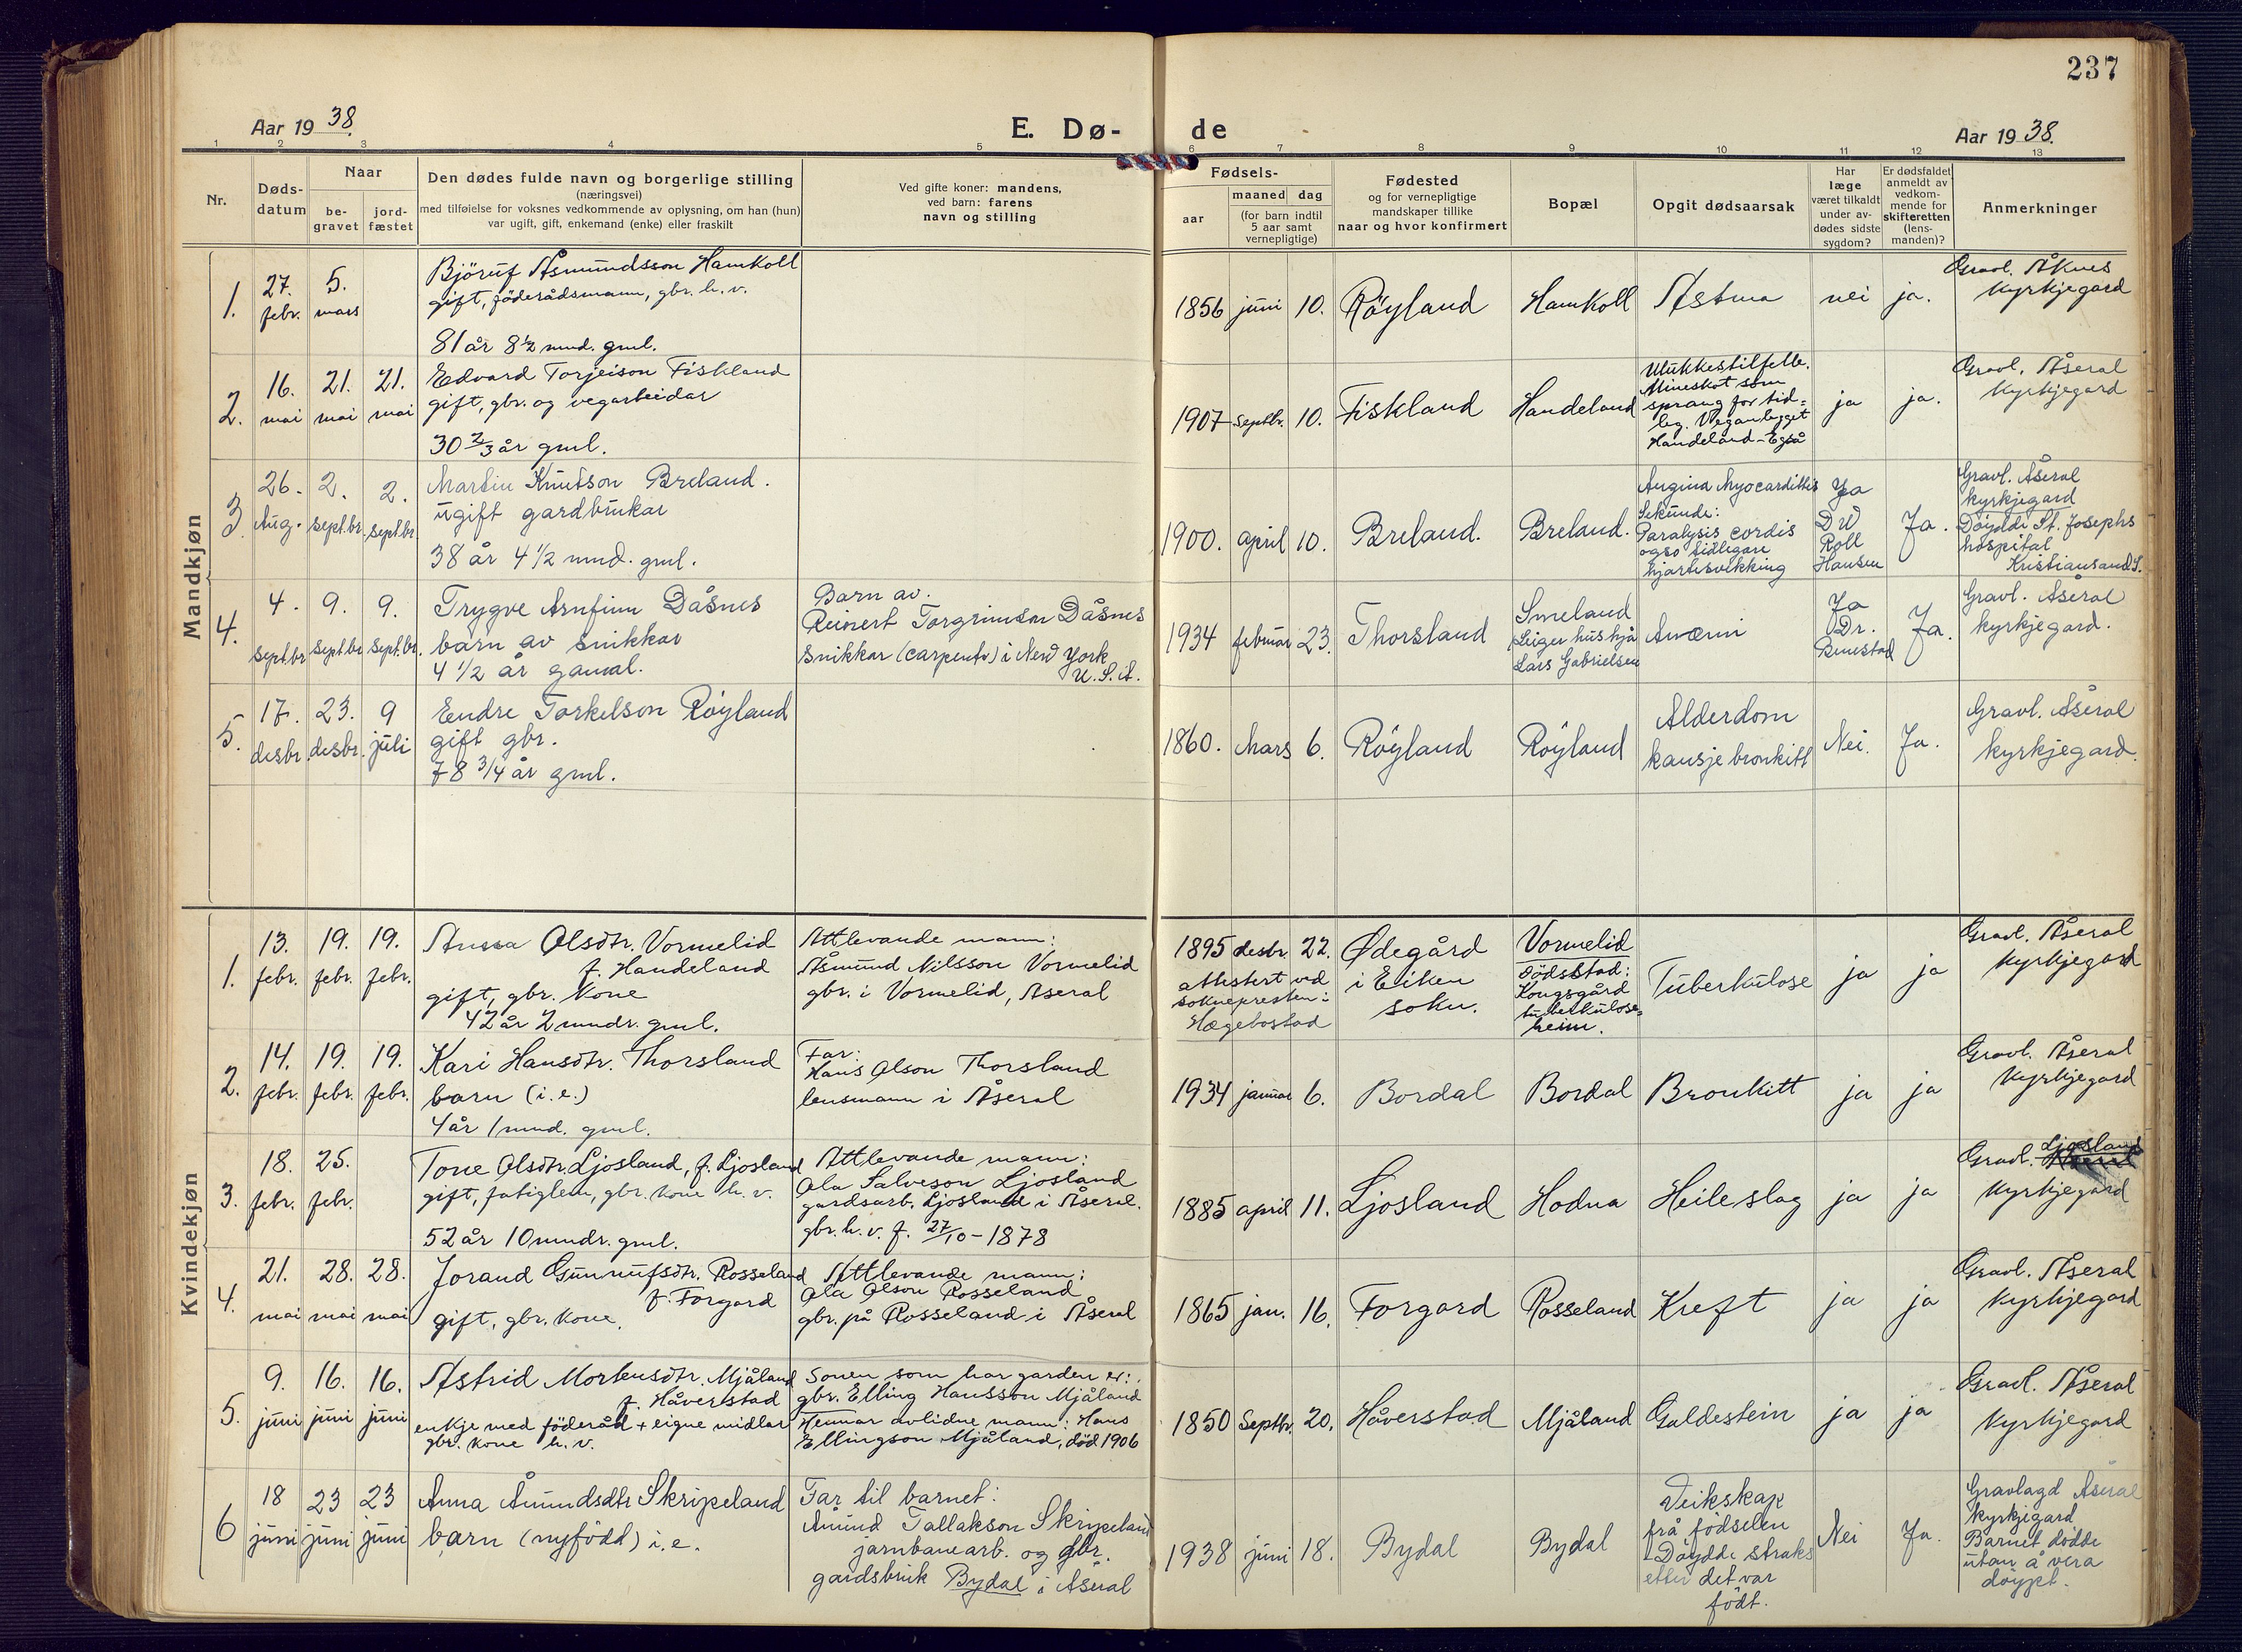 237
Aar 1938.
E. Dø-
de
Aar 1938.
1 2 3 4 5 6 7 8 9 10 11 12 13
Nr.
Døds-
datum
Naar
be-
gravet
jord-
fæstet
Den dødes fulde navn og borgerlige stilling
(næringsvei)
med tilføielse for voksnes vedkommende av oplysning, om han (hun)
var ugift, gift, enkemand (enke) eller fraskilt
Ved gifte koner: mandens,
ved barn: farens
navn og stilling
Fødsels-
aar
maaned dag
(for barn indtil
5 aar samt
vernepligtige)
Fødested
og for vernepligtige
mandskaper tillike
naar og hvor konfirmert
Bopæl
Opgit dødsaarsak
Har
læge
været tilkaldt
under av-
dødes sidste
sygdom?
Er dødsfaldet
anmeldt av
vedkom-
mende for
skifteretten
(lens-
manden)?
Anmerkninger
Mandkjøn
1.
27.
febr.
5.
mars
Björuf Åsmundsson Hamkoll
gift, föderådsmann, gbr. h. v.
81 år 8½ mnd. gml.
1856 juni 10.
Röyland
Hamkoll
Astma
nei
ja.
Gravl. Åknes
kyrkjegard
2.
16.
mai
21.
mai
21.
mai
Edvard Torjeison Fiskland
gift, gbr. og vegarbeidar
30 2/3 år gml.
1907 septbr. 10.
Fiskland
Handeland
Ulukkestilfelle.
Mineskot som
sprang for tid=
leg. Veganlegget
Handeland-Eg
ja
ja.
Gravl. Åseral
kyrkjegard
3.
26.
Aug.
2.
sept.br.
2.
sept.br.
Martin Knutson Breland.
ugift gardbrukar
38 år 4 1/2 mnd. gml.
1900. april 10.
Breland.
Breland.
Angina Myocardittis
Sekunde:
Paralysis cordis
også tidligare
hjartesvekking
Ja
Dr
Roll
Hansen
Ja.
Gravl. Åseral
kyrkjegard
Döydde St. Josephs
hospital
Kristiansand S.
4.
4.
sept.br
9.
sept.br
9.
sept.br.
Trygve Arnfinn Dåsnes
barn av snikkar
4 1/2 år gamal.
Barn av.
Reinert Torgrimson Dåsnes
Snikkar (carpentr) i New York
U.S.A.
1934 februar 23.
Thorsland
Smeland
Leiger hus hjå
Lars Gabrielsen
Anæmi
Ja
Dr.
Ja.
Gravl. Åseral
kyrkjegard.
5.
17.
desbr.
23.
desbr.
9
juli
Endre Torkelson Röyland
gift gbr.
78 3/4 år gml.
1860. Mars 6.
Röyland
Röyland
Alderdom
kansje bronkitt
Nei.
Ja.
Gravl. Åseral
kyrkjegard.
Kvindekjøn
1.
13.
febr.
19.
febr.
19.
febr.
Anna Olsdtr. Vormelid
f. Handeland
gift, gbr. kone
42 år 2 mndr. gml.
Attlevande mann:
Åsmund Nilsson Vormelid
gbr. i Vormelid, Åseral
1895 desbr. 22.
attestert ved
sokneprestem i
Hægebostad
Ødegård
i Eiken
sokn.
Vormelid
Dödsstad:
Kongsgård
tuberkulose=
heim.
Tuberkulose
ja
ja
Gravl. Åseral
kyrkjegard
2.
14.
febr.
19.
febr.
19.
febr.
Kari Hansdtr. Thorsland
barn (i.e.)
4 år 1 mnd. gml.
Far:
Hans Olson Thorsland
lensmann i Åseral
1934 januar 6.
Bordal
Bordal
Bronkitt
ja
ja
Gravl. Åseral
kyrkjegard
3.
18.
febr.
25.
febr.
Tone Olsdtr. Ljosland, f. Ljosland
gift, fatiglem, gbr. kone h. v.
52 år 10 mndr. gml.
Attlevande mann:
Ola Salveson Ljosland
gardsarb. Ljosland i Åseral.
gbr. h. v. f. 27/10 - 1878
1885 april 11.
Ljosland
Hodna
Heileslag
ja
ja
Ljosland
Gravl.
kyrkjegard
4.
21.
mai
28.
mai
28.
mai
Jorand Gunnufsdtr. Rosseland
f. Forgard
gift, gbr. kone.
Attlevande mann:
Ola Olson Rosseland
gbr. på Rosseland i Åseral
1865 jan. 16.
Forgard
Rosseland
Kreft
ja
ja
Gravl. Åseral
kyrkjegard
5.
9.
juni
16.
juni
16.
juni
Astrid Mortensdtr. Mjåland
f. Håverstad
enkje med föderåd + eigne midlar
gbr. kone h. v.
Sonen som har garden er:
gbr. Elling Hansson Mjåland
Hennar avlidne mann: Hans
Ellingson Mjåland, död 1906
1850 Septbr. 20.
Håverstad
Mjåland
Galdestein
ja
ja
Gravl. Åseral
kyrkjegard
6
18
juni
23
juni
23
juni
Anna Åmundsdtr Skripeland
barn (nyfödd) i.e.
Far til barnet:
Åmund Tallakson Skripeland
jarnbanearb. og gbr.
gardsbruk Bydal i Åseral
1938 juni 18.
Bydal
Bydal
Veikskap
frå födselen
Döydde straks
etter det var
födt.
Nei
Ja.
Gravlagd Åseral
kyrkjegard
Barnet dödde
utan å vera
döypt.